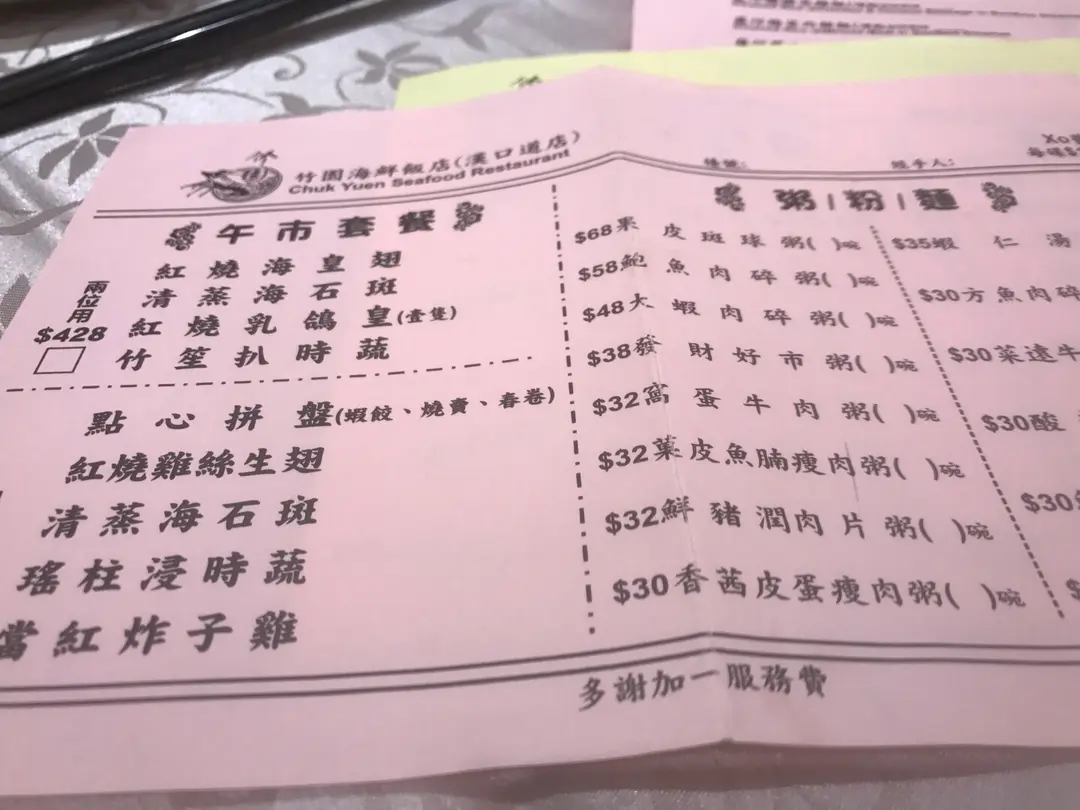 竹園海鮮飯店(漢口道店)
Chuk Yuen Seafood Restaurant
午市套餐
紅燒海皇翅
清蒸海石斑
紅燒乳鴿皇(壹隻)
竹笙扒時蔬
兩位用
$428
點心拼盤(蝦餃、燒賣、春卷)
紅燒雞絲生翅
清蒸海石斑
瑤柱浸時蔬
當紅炸子雞
經手人:
粥/粉/麵
$68果皮斑球粥( )碗
$58鮑魚肉碎粥( )碗
$48大蝦肉碎粥( )碗
$38發財好市粥( )碗
$32窩蛋牛肉粥( )碗
$32菓皮魚腩瘦肉粥( )碗
$32鮮豬潤肉片粥( )碗
$30香茜皮蛋瘦肉粥( )碗
$35蝦仁湯
$30方魚肉碎
$30菜遠牛
$30酸
$30
多謝加一服務費